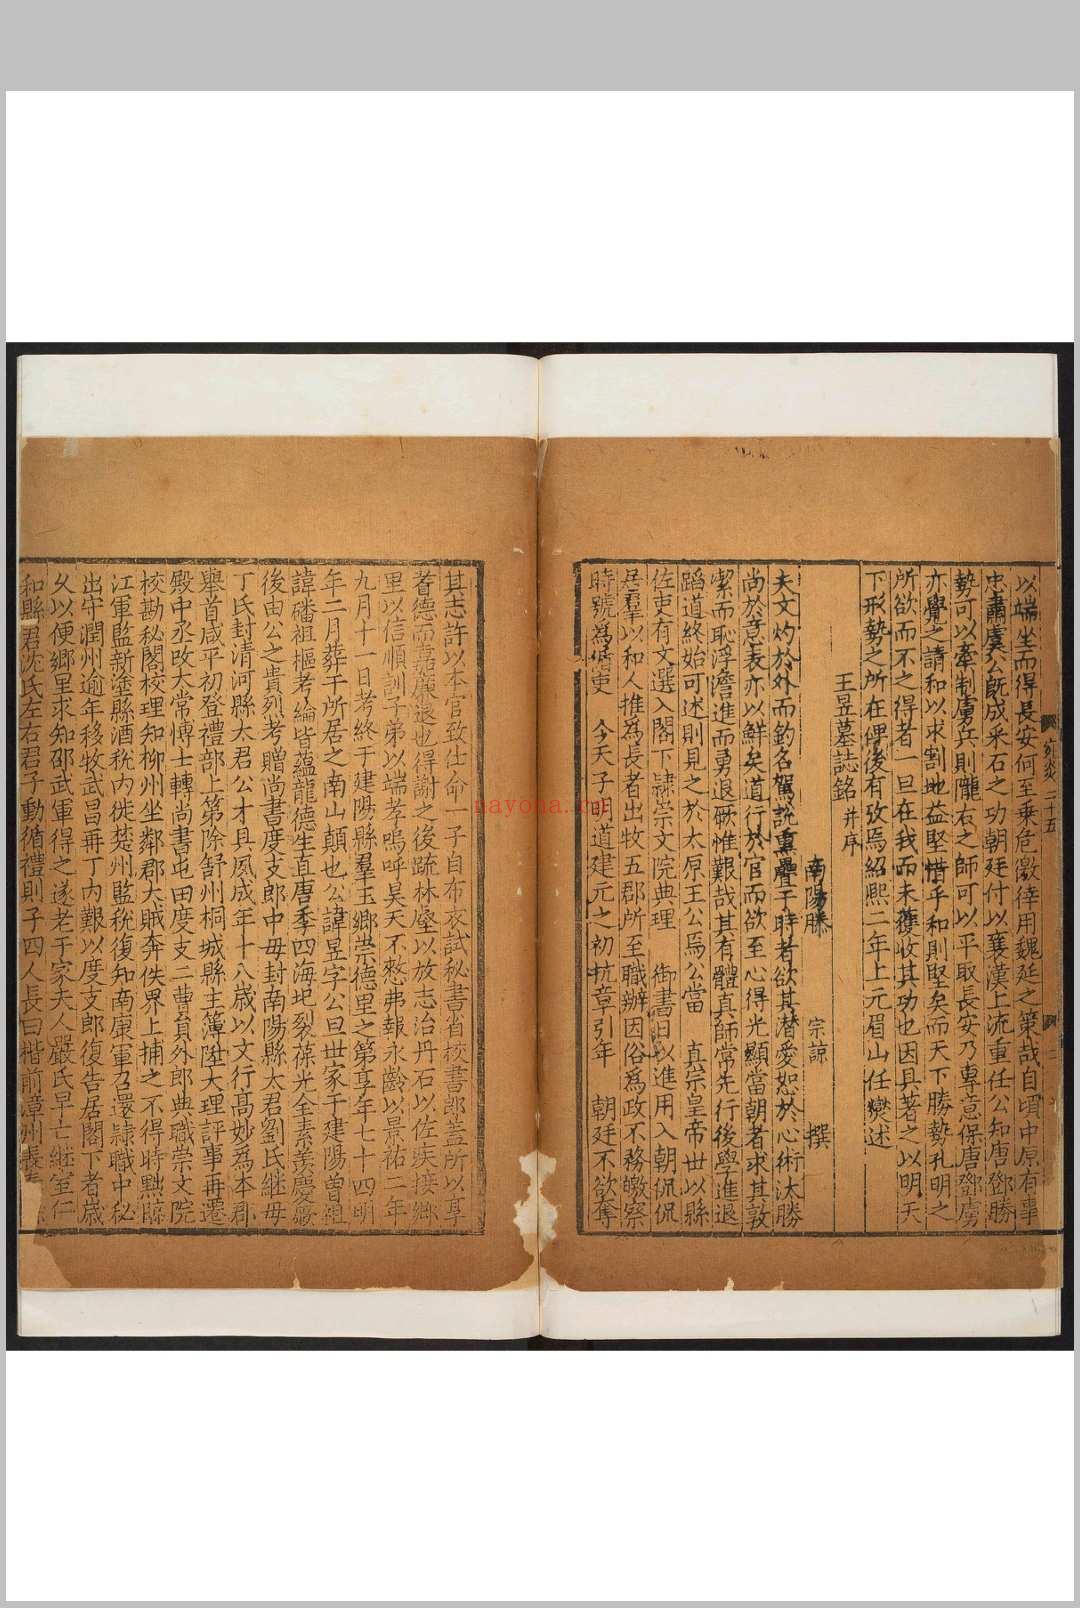 以端坐而得長安何至乘危徼倖用魏延之策哉自頃中原有事
忠肅虞公旣成采石之功朝廷付以襄漢上流重任公知唐鄧勝
勢可以牽制虜兵則隴右之師可以平取長安乃專意保唐鄧虜
亦覺之請和以求割地益堅惜乎和則堅矣而天下勝勢孔明之
所欲而不之得者一旦在我而未獲收其功也因具著之以明天
下形勢之所在俾後有攷焉紹熙二年上元眉山任燮述
王昱墓誌銘 并序
南陽滕 宗諒 撰
夫文灼於外而釣名駕說熏疊于時者欲其潜愛恕於心術汰勝
尚於意表亦以鮮矣道行於官而欲至心得光顯當朝者求其敦
絜而恥浮澹進而勇退厥惟艱哉其有體真師常先行後學進退
蹈道終始可述則見之於太原王公焉公當 真宗皇帝世以縣
佐吏有文選入閣下隷崇文院典理 御書日以進用入朝侃侃
居羣以和人推為長者出牧五郡所至職辦因俗為政不務皦察
時號為循吏 今天子明道建元之初抗章引年 朝廷不欲奪
其志許以本官致仕命一子自布衣試秘書省校書郎蓋所以享
耆德而嘉廉退也得謝之後疏林壑以放志治丹石以佐疾接鄉
里以信順訓子弟以端孝嗚呼昊天不憗弗報永齡以景祐二年
九月十一日考終于建陽縣羣玉鄉崇德里之第享年七十四明
年二月葬于所居之南山顛也公諱昱字公旦世家于建陽曾祖
諱璠祖樞考綸皆蘊龍德生直唐季四海圯裂葆光全素羨慶嚴
後由公之貴列考贈尚書度支郎中毋封南陽縣太君劉氏継毋
丁氏封清河縣太君公才具夙成年十八歳以文行髙妙為本郡
舉首咸平初登禮部上第除舒州桐城縣主簿陞大理評事再遷
殿中丞改太常博士轉尚書屯田度支二曹員外郎典職崇文院
校勘秘閣校理知柳州坐鄰郡大賊奔佚界上捕之不得時黜臨
江軍監新塗縣酒稅内徙楚州監稅復知南康軍召還隷職中秘
出守潤州逾年移牧武昌再丁内艱以度支郎復告居閣下者歳
久以便鄉里求知邵武軍得之遂老于家夫人嚴氏早亡継室仁
和縣君沈氏左右君子動循禮則子四人長曰楷前漳州
外炎二十五
nayona.cn